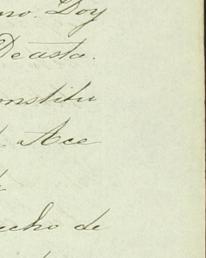 no. Doy
Deasta.
onstitu
Ace
echo de